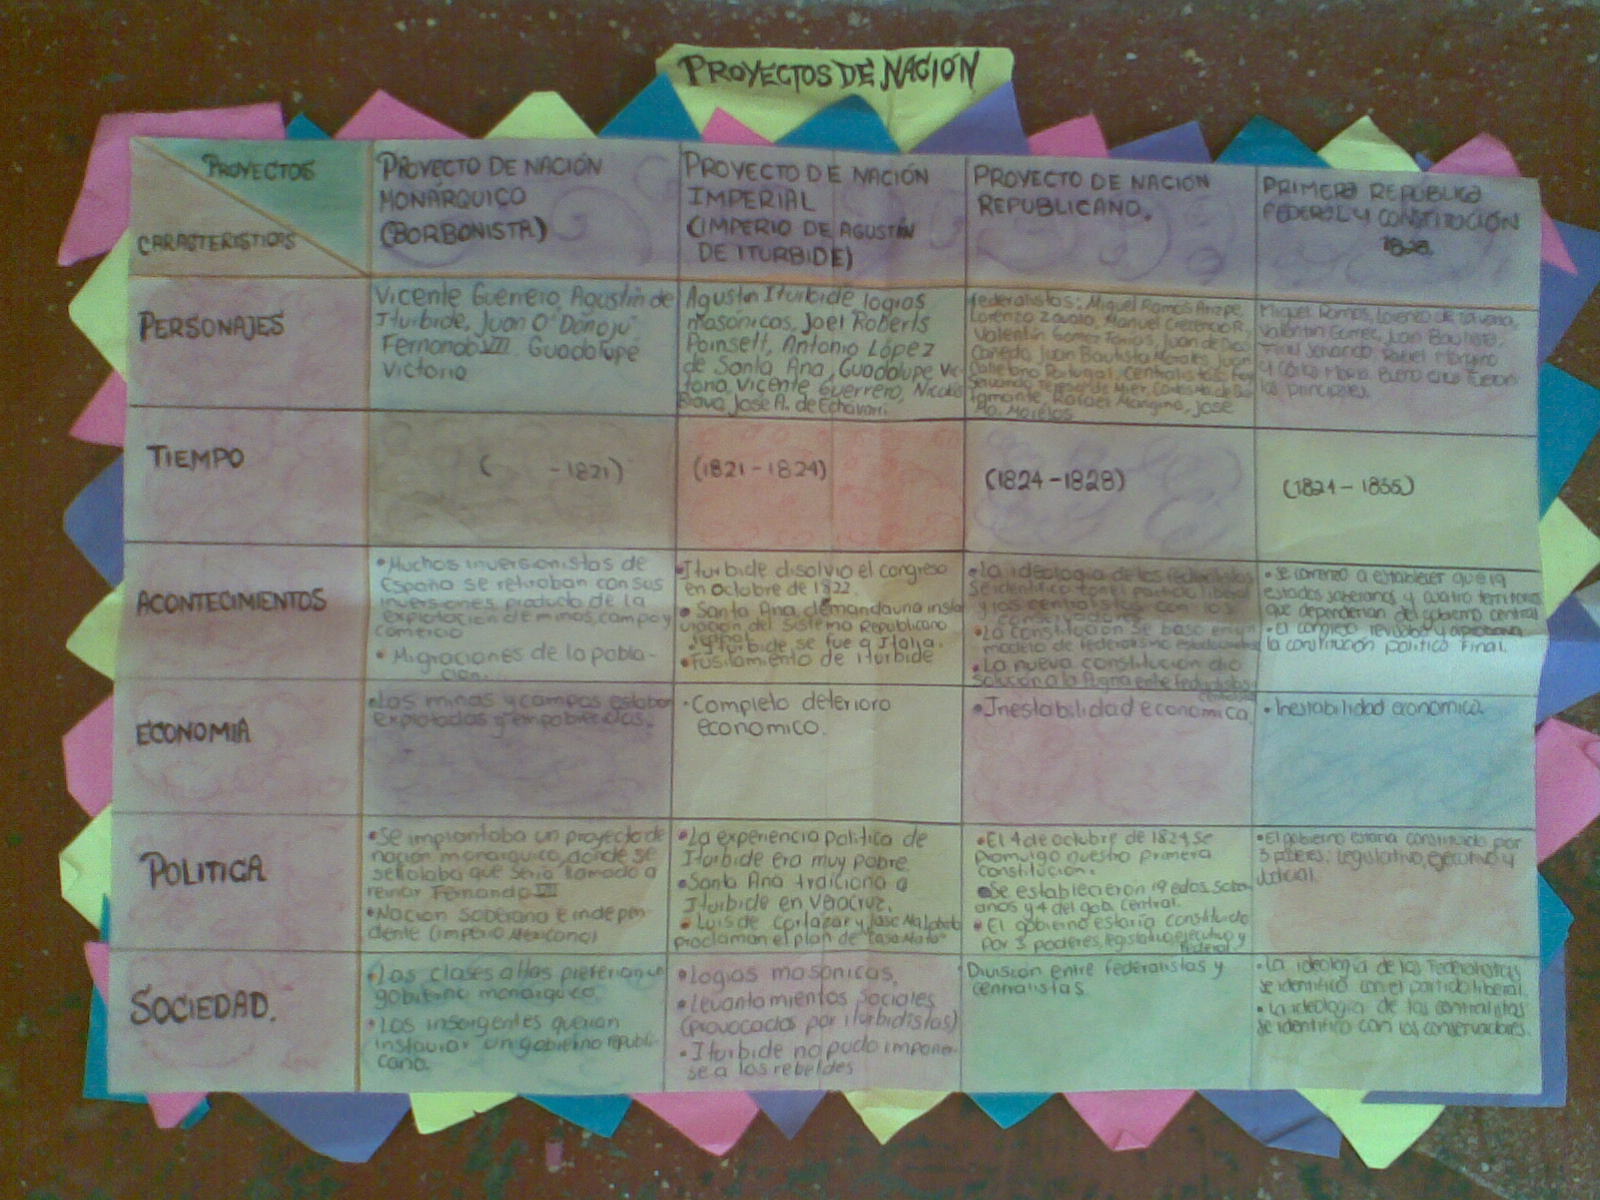 PROYECTOS DE NACIÓN
PROYECTOS
CARASTERISTICAS
PROYECTO DE NACIÓN
MONÁRQUICO
(BORBONISTA)
PROYECTO DE NACIÓN
IMPERIAL
(IMPERIO DE AGUSTÍN
DE ITURBIDE)
PROYECTO DE NACION
REPUBLICANO.
PRIMERA REPÚBLICA
FEDERAL Y CONSTITUCIÓN
PERSONAJES
Vicente Guerrero, Agustín de
Iturbide, Juan O'Donojú
Fernando VII Guadalupe
Victoria
Agustin Iturbide logias
masónicas, Joel Roberts
Poinsett, Antonio López
de Santa Ana, Guadalupe Vic-
toria, Vicente Guerrero, Nicolás
Bravo, Jose A. de Echavarri.
federalistas: Miguel Ramos Arizpe,
Lorenzo Zavala, Manuel Crecencio R,
Valentín Gomez Farias, Juan de Dios
Cañedo, Juan Bautista Morales, Juan
Calletano Portugal, Centralistas: Fray
Servando Teresa de Mier, Carlos Ma. de Bus
tamante, Rafael Mangino, Jose
Ma. Morelos
Miguel Ramos, Lorenzo de
Valentin Gomez, Juan Bautista,
Fray Servando, Rafael Mangino
y Carlos Maria fueron
los principales.
TIEMPO
( -1821)
(1821-1824)
(1824-1828)
(1824-1835)
ACONTECIMIENTOS
•Muchos inversionistas de
España se retiraban con sus
inversiones producto de la
explotacion de minas, campo y
comercio
• Migraciones de la pobla-
cion.
•Iturbide disolvio el congreso
en octubre de 1822.
• Santa Ana demanda una insta
uracion del sistema Republicano
•Iturbide se fue a Italia.
•Fusilamiento de iturbide
•La ideologia de los federalistas
se identifico con el partido liberal
y los centralistas con los
conservadores
•La constitucion se baso en un
modelo de federalismo estadounidense
•La nueva constitucion dio
solucion a la pugna entre fedralistas
• se comenzo a establecer que 19
estados soberanos y cuatro territorios
que dependerian del gobierno central
•El congreso revisaba y aprobaba
la constitucion politica final.
ECONOMIA
•Las minas y campos estaban
explotadas y empobrecidas.
•Completo deterioro
economico.
•Inestabilidad economica
•Inestabilidad economica
POLITICA
•Se implantaba un proyecto de
nación monarquico, donde se
señalaba que seria llamado a
reinar Fernando VII
•Nacion soberana e indepen-
diente (imperio Mexicano)
•La experiencia politica de
Iturbide era muy pobre.
•Santa Ana traiciona a
Iturbide en Veracruz.
•Luis de Cortazar y Jose Ma Lobato
proclaman el plan de "Casa Mata"
•El 4 de octubre de 1824 se
promulgo nuestra primera
constitucion.
•Se establecieron 19 edos. sober
anos y 4 del gob. central.
•El gobierno estaria constituido
por 3 poderes, legislativo, ejecutivo y
federal
•El gobierno estaria constituido por
3 poderes: legislativo, ejecutivo y
Judicial.
SOCIEDAD.
•Las clases altas preferian un
gobierno monarquico.
•Los insorgentes querian
instaurar un gobierno republi-
cano.
•Logias masonicas.
•Levantamientos sociales
(provocados por iturbidistas)
•Iturbide no pudo imponer-
se a los rebeldes
Division entre federalistas y
centralistas
•La ideología de los Federalistas
se identificó con el partido liberal
•La ideologia de los centralistas
se identifico con los conservadores.